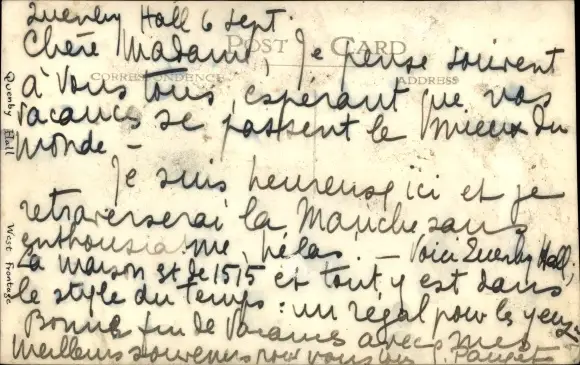 Quenby Hall 6 sept.
Chère Madame, Je pense souvent
POST CARD
CORRESPONDENCE ADDRESS
à vous tous, espérant que vos
vacances se passent le mieux du
monde –
Je suis heureuse ici et je
retraverserai la Manche sans
enthousiasme, hélas. – Voici Quenby Hall;
La maison est de 1515 et tout y est dans
le style du temps: un régal pour les yeux
Bonne fin de vacances avec mes
meilleurs souvenirs pour vous tous
Quenby Hall West Frontage